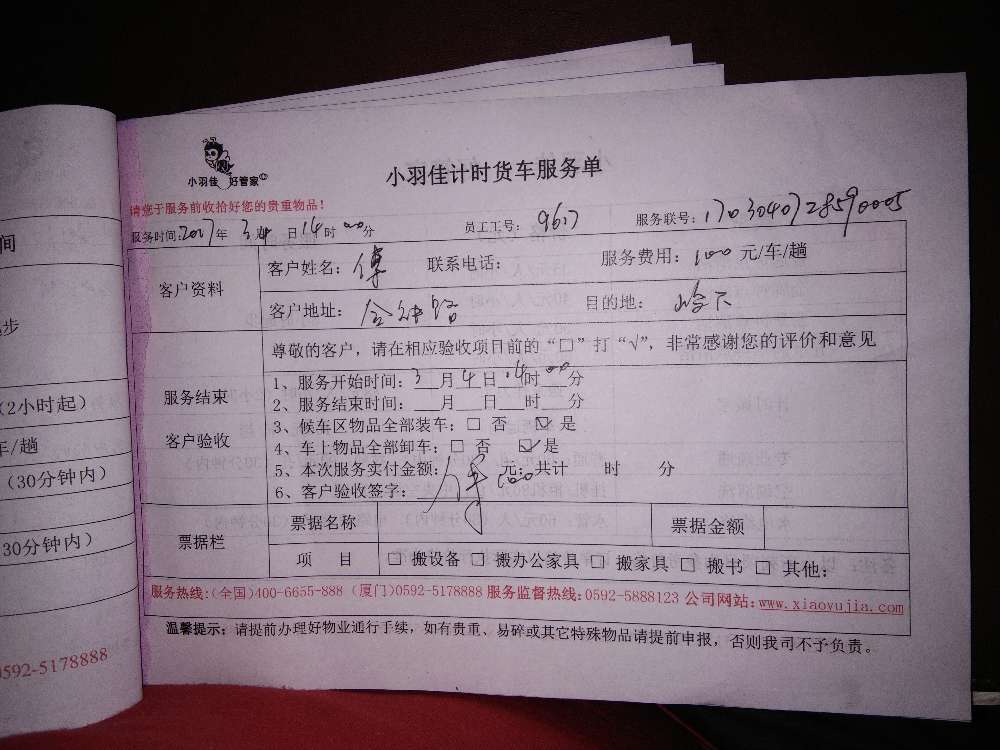 小羽佳 好管家
小羽佳计时货车服务单
请您于服务前收拾好您的贵重物品！
服务时间:2017年 3月4日14时00分 员工工号：9617 服务联号：1703040728590005
客户资料
客户姓名：傅 联系电话： 服务费用：100 元/车/趟
客户地址： 目的地：岭下
尊敬的客户，请在相应验收项目前的“□”打“√”，非常感谢您的评价和意见
服务结束
客户验收
1、服务开始时间：3月4日14时00分
2、服务结束时间：___月___日___时___分
3、候车区物品全部装车：□ 否 ☑ 是
4、车上物品全部卸车：□ 否 ☑ 是
5、本次服务实付金额：100元；共计 时 分
6、客户验收签字：
票据栏
票据名称 票据金额
项 目 □ 搬设备 □ 搬办公家具 □ 搬家具 □ 搬书 □ 其他：
服务热线:(全国)400-6655-888 (厦门)0592-5178888 服务监督热线:0592-5888123 公司网站:www.xiaoyujia.com
温馨提示：请提前办理好物业通行手续，如有贵重、易碎或其它特殊物品请提前申报，否则我司不予负责。
间
步
(2小时起)
车/趟
(30分钟内)
30分钟内)
0592-5178888